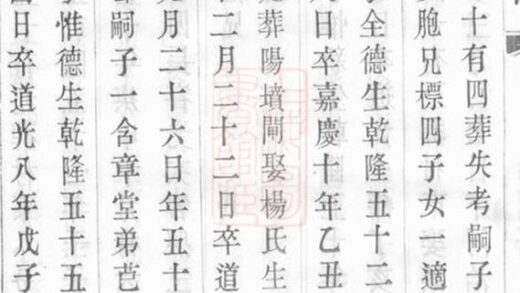 十有四葬失考嗣子
胞兄標四子女一適
全德生乾隆五十二
日卒嘉慶十年乙丑
葬陽墳閘娶楊氏生
二月二十二日卒道
月二十六日年五十
嗣子一含章堂弟芑
惟德生乾隆五十五
日卒道光八年戊子